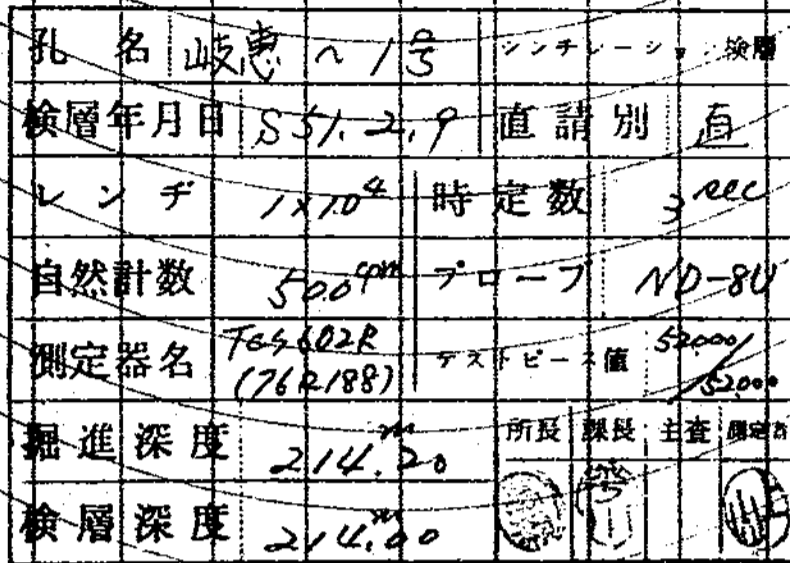 孔名 岐恵~1号 シンチレーション検層
検層年月日 S51.2.9 直請別 直
レンヂ 1×10⁴ 時定数 3 sec
自然計数 500 cpm プローブ ND-8U
測定器名 TGS602R (76R188) テストピース値 52,000/52,000
掘進深度 214.20 m 所長 課長 主査 測定者
検層深度 214.00 m